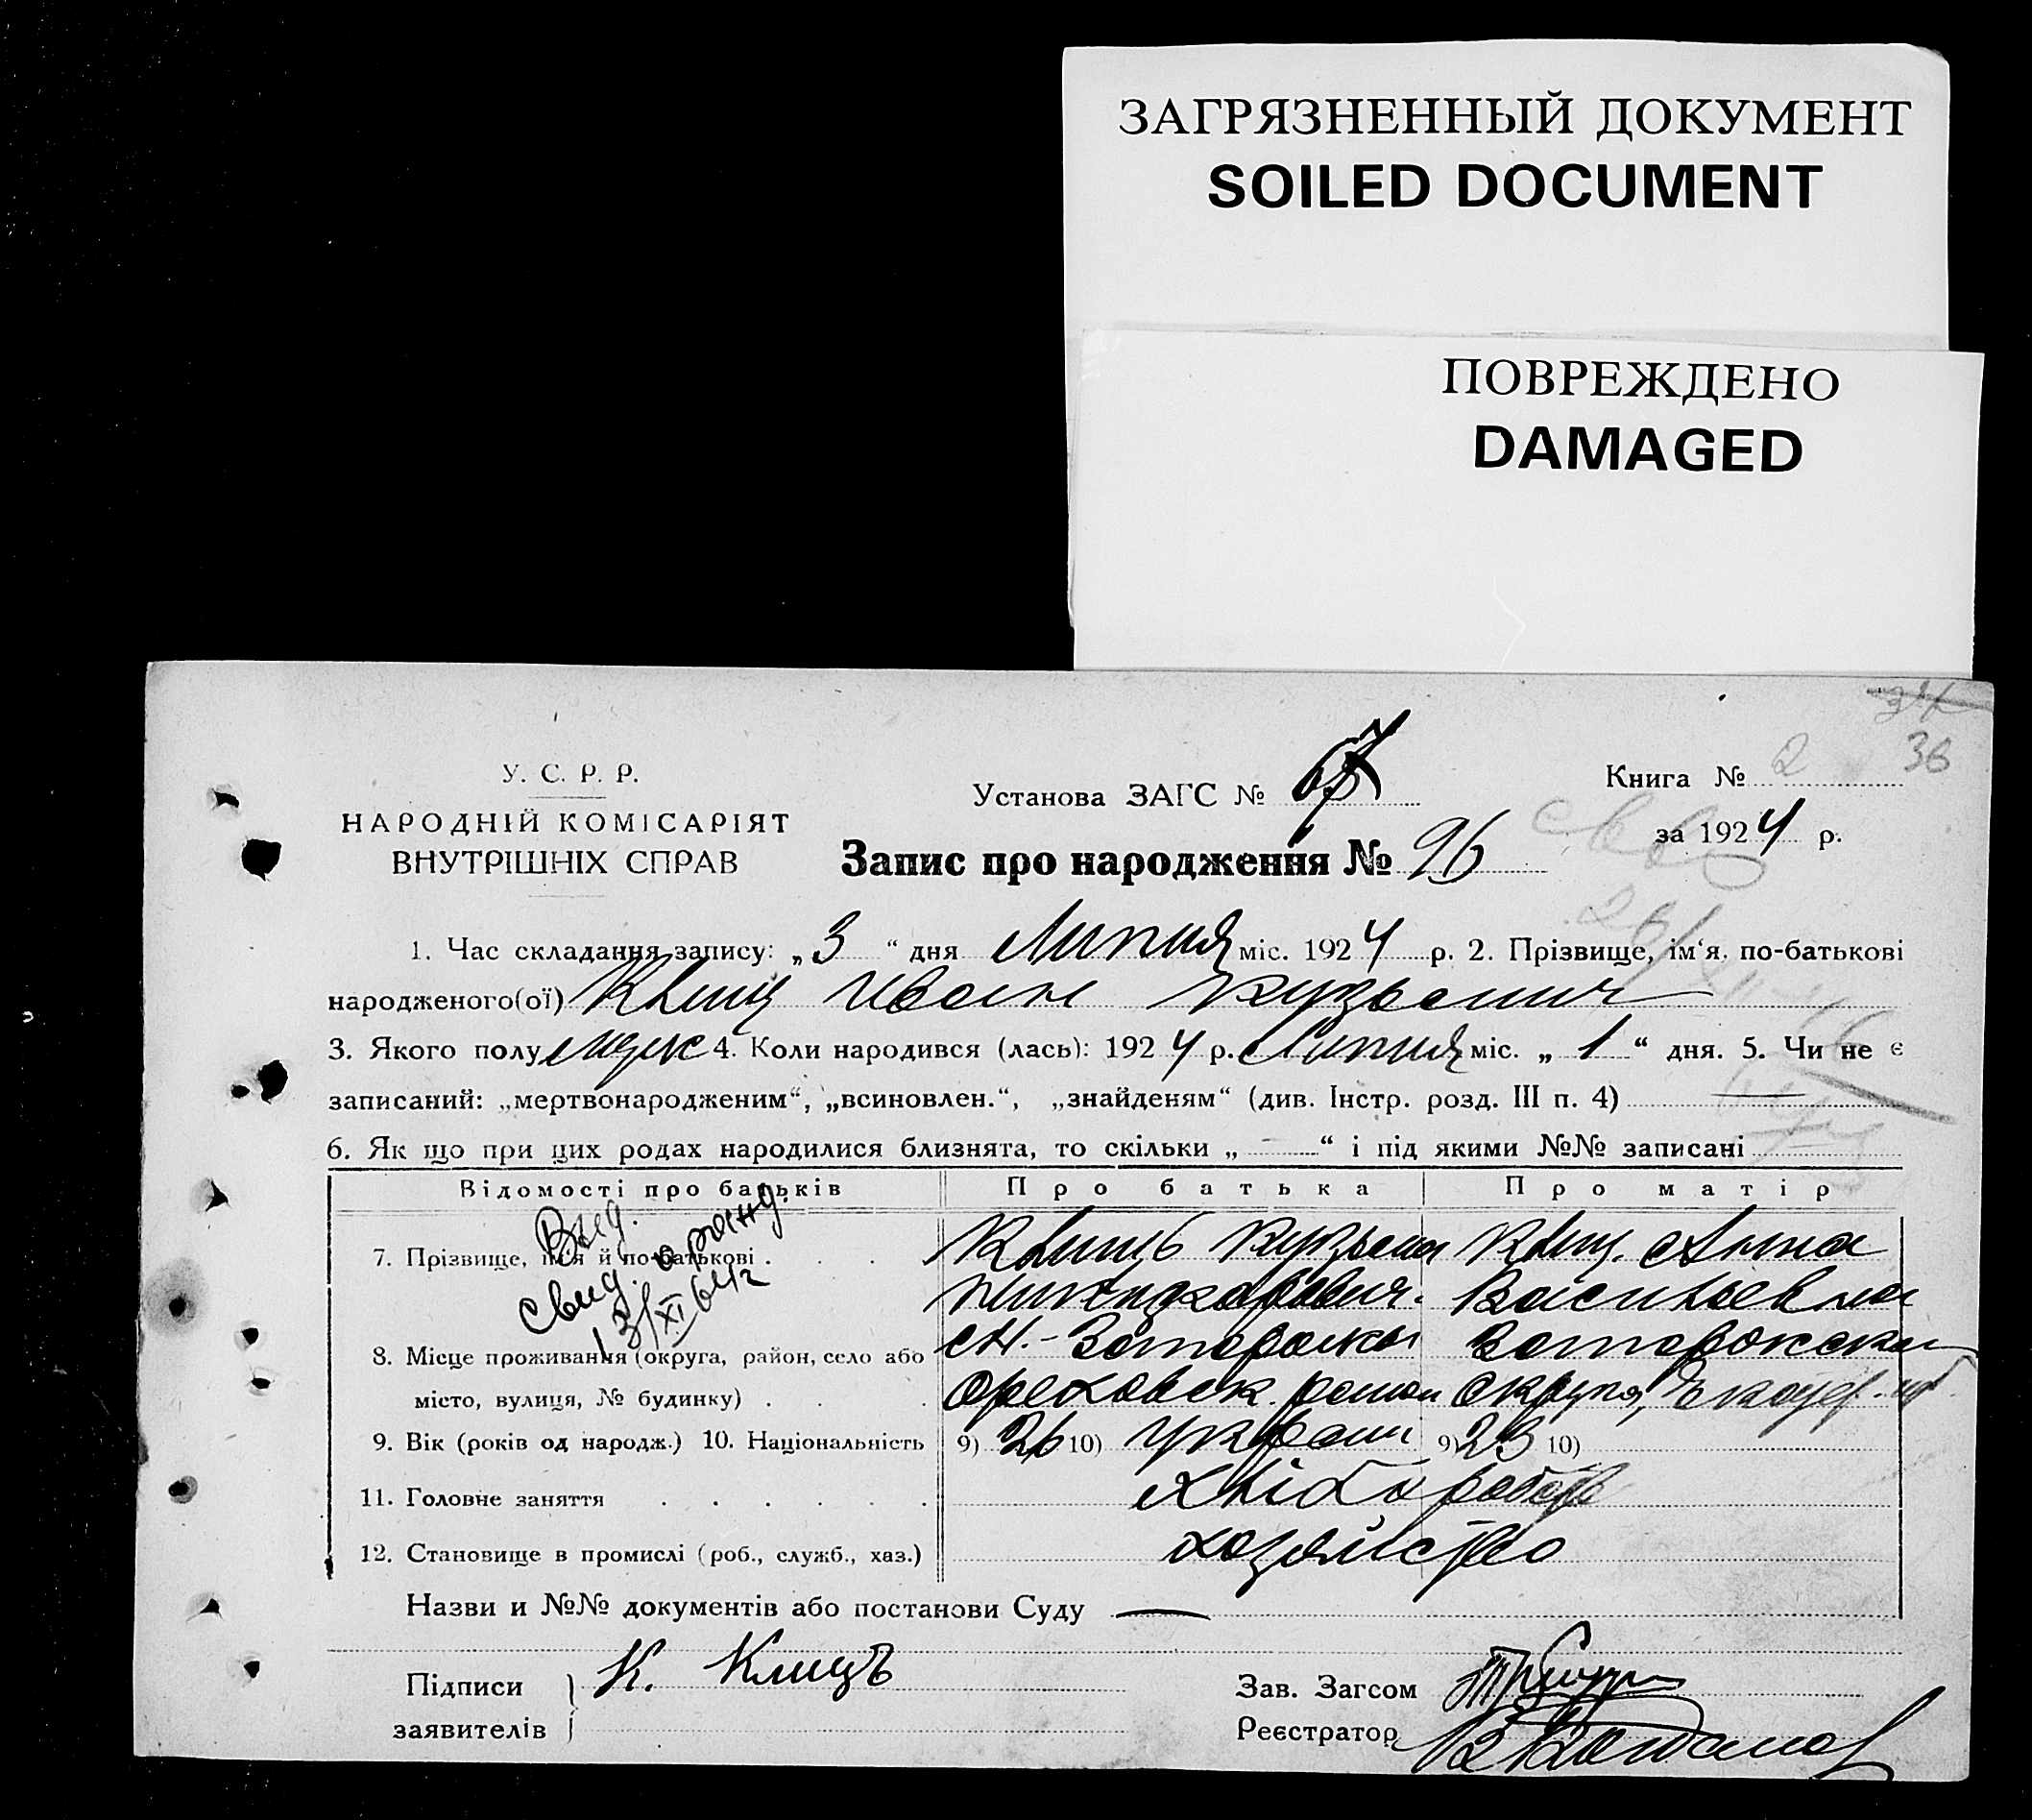 ЗАГРЯЗНЕННЫЙ ДОКУМЕНТ
SOILED DOCUMENT
ПОВРЕЖДЕНО
DAMAGED
36
У. С. Р. Р.
НАРОДНІЙ КОМІСАРІЯТ
ВНУТРІШНІХ СПРАВ
Установа ЗАГС №
Книга № 2
за 1924 р.
Запис про народження № 96
1. Час складання запису: „3“ дня Липня міс. 1924 р. 2. Прізвище, ім‘я, по-батькові
народженого(ої) Клиц Иван Кузьмич
3. Якого полу муж 4. Коли народився (лась): 1924 р. Липня міс. „1“ дня. 5. Чи не є
записаний: „мертвонародженим“, „всиновлен.“, „знайденям“ (див. Інстр. розд. III п. 4) —
6. Як що при цих родах народилися близнята, то скільки „—“ і під якими №№ записані
Відомості про батьків Про батька Про матір
Выд.
свид. о рожд.
13/XI 64 г
7. Прізвище, ім'я й по-батькові . . . . Клицъ Кузьма Клиц. Анна
Васильевна
8. Місце проживання (округа, район, село або
місто, вулиця, № будинку) . . . Ореховск. район округа,
9. Вік (років од народж.) 10. Національність 9) 26 10) Украин 9) 23 10)
11. Головне заняття . . . . . . Хліборобств
12. Становище в промислі (роб., служб., хаз.) хозяйство
Назви и №№ документів або постанови Суду —
Підписи
заявителів
К. Клицъ
Зав. Загсом
Реєстратор